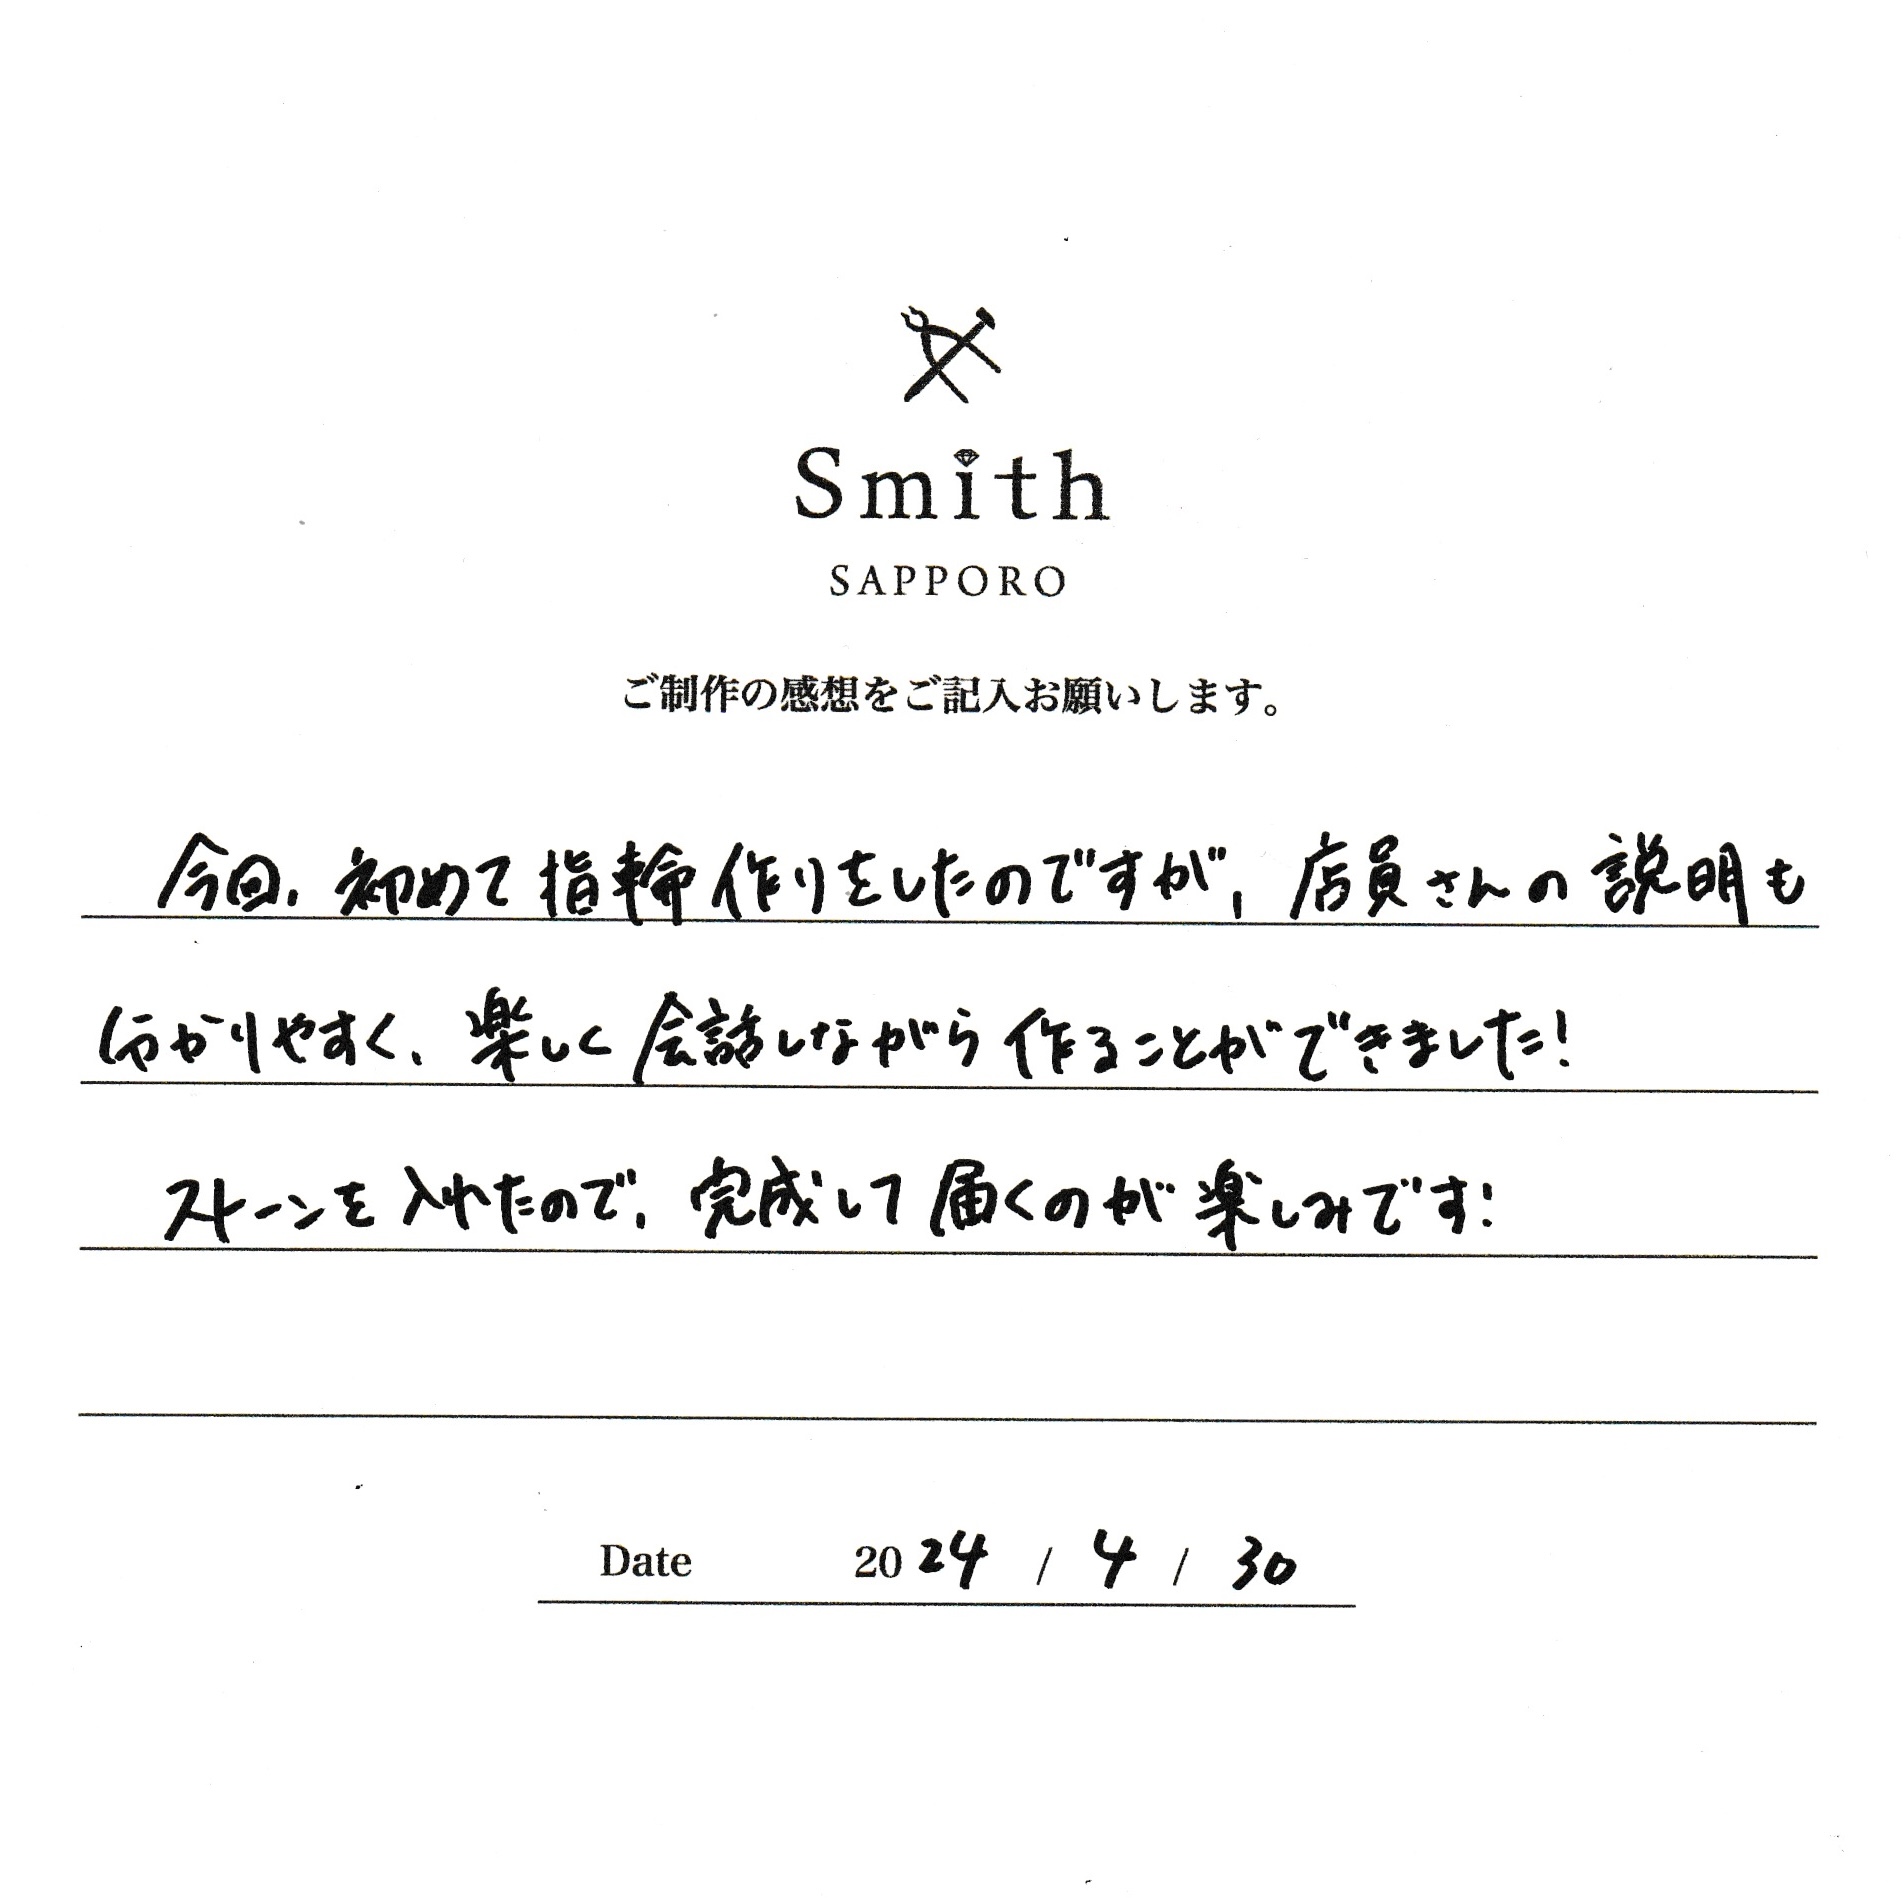 Smith
SAPPORO
ご制作の感想をご記入お願いします。
今回、初めて指輪作りをしたのですが、店員さんの説明も
分かりやすく、楽しく会話しながら作ることができました!
ストーンを入れたので、完成して届くのが楽しみです!
Date 2024 / 4 / 30